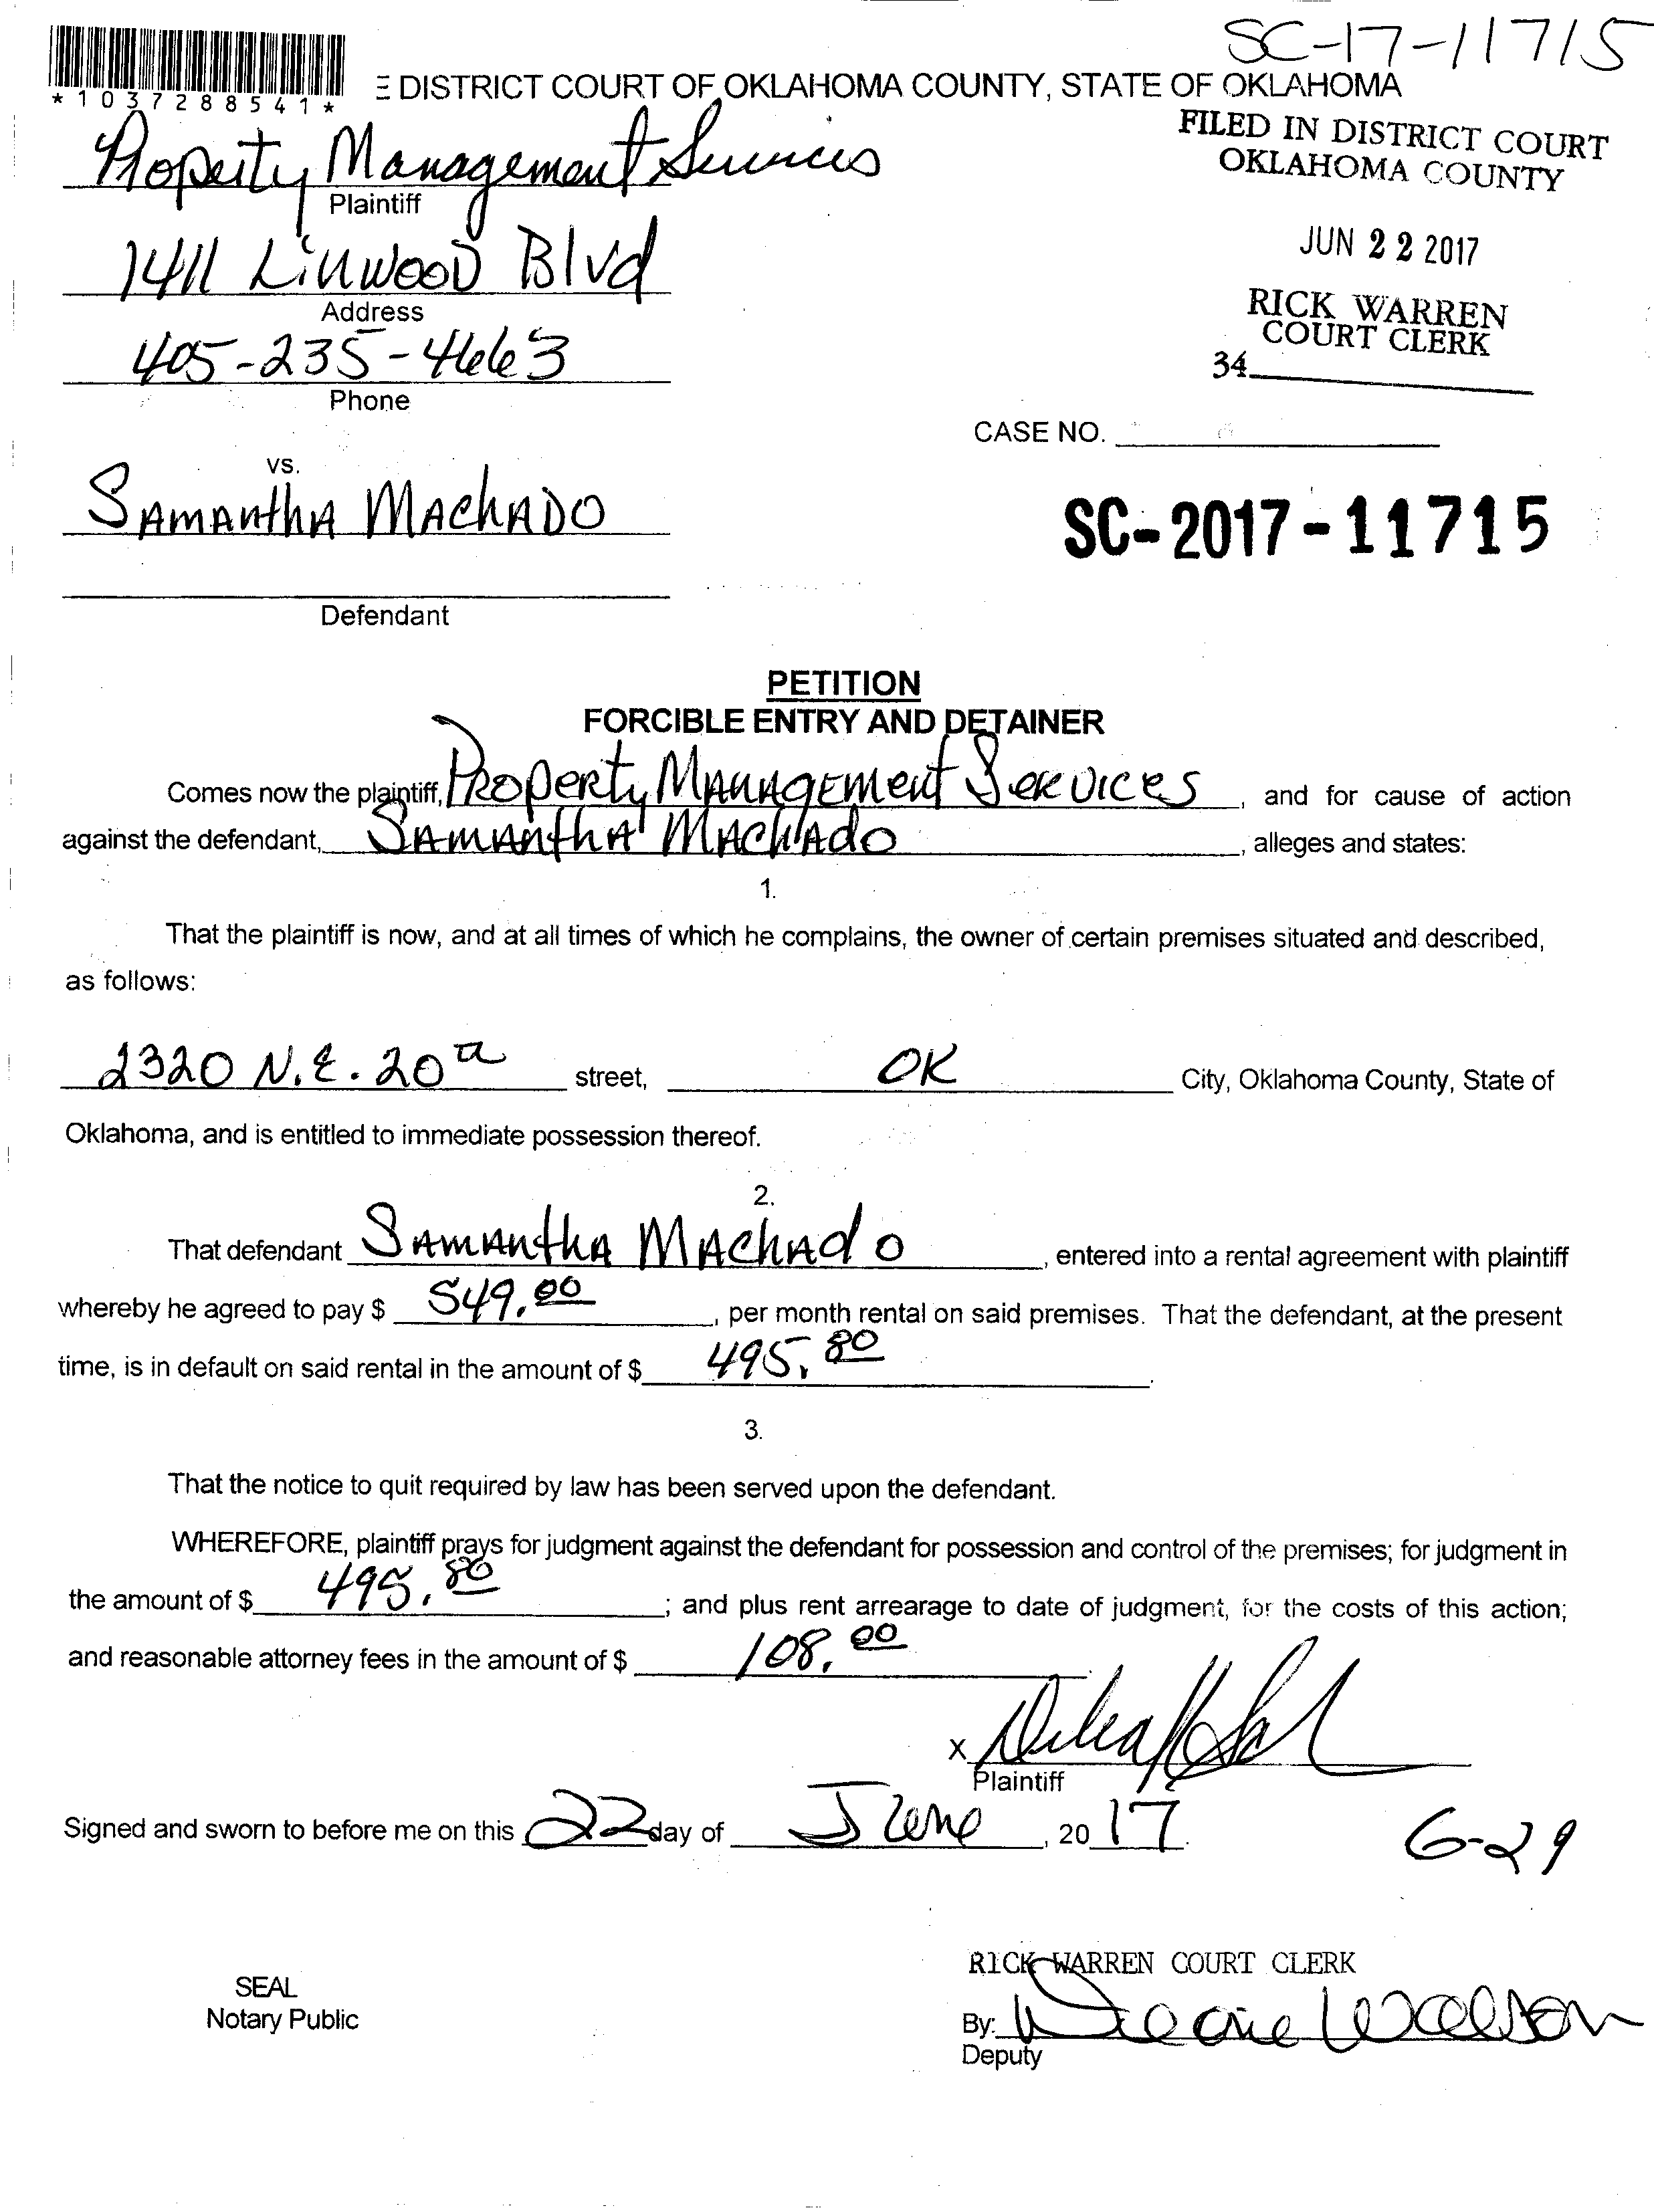 SC-17-11715
*1037288541*
E DISTRICT COURT OF OKLAHOMA COUNTY, STATE OF OKLAHOMA
FILED IN DISTRICT COURT
OKLAHOMA COUNTY
Property Management Services
Plaintiff
JUN 22 2017
1411 Linwood Blvd
Address
RICK WARREN
COURT CLERK
34
405-235-4663
Phone
CASE NO.
vs.
SAMANthA MAChADO
SC-2017-11715
Defendant
PETITION
FORCIBLE ENTRY AND DETAINER
Comes now the plaintiff, Property MANAGEMent Services, and for cause of action
against the defendant, SAMANthA MAChAdo, alleges and states:
1.
That the plaintiff is now, and at all times of which he complains, the owner of certain premises situated and described,
as follows:
2320 N.E. 20th street, OK City, Oklahoma County, State of
Oklahoma, and is entitled to immediate possession thereof.
2.
That defendant SAMANthA MAChAdo, entered into a rental agreement with plaintiff
whereby he agreed to pay $ 549.00, per month rental on said premises. That the defendant, at the present
time, is in default on said rental in the amount of $ 495.80.
3.
That the notice to quit required by law has been served upon the defendant.
WHEREFORE, plaintiff prays for judgment against the defendant for possession and control of the premises; for judgment in
the amount of $ 495.80; and plus rent arrearage to date of judgment, for the costs of this action;
and reasonable attorney fees in the amount of $ 108.00.
X
Plaintiff
Signed and sworn to before me on this 22 day of June, 2017.
6-29
RICK WARREN COURT CLERK
SEAL
Notary Public
By:
Deputy